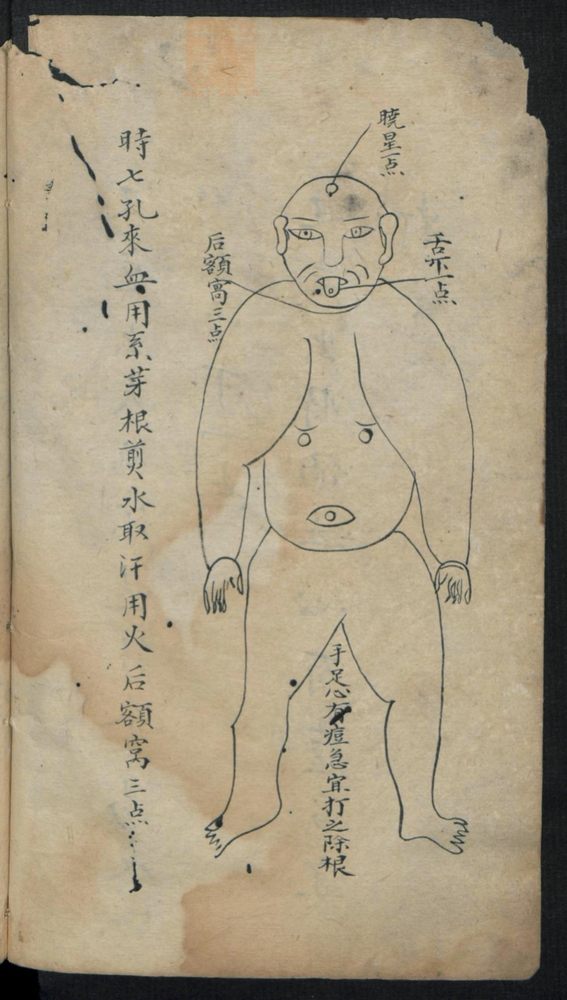 曉星一点
舌下一点
后額窩三点
手足心有痘急宜打之除根
時七孔來血用糸芽根剪水取汗用火后額窩三点